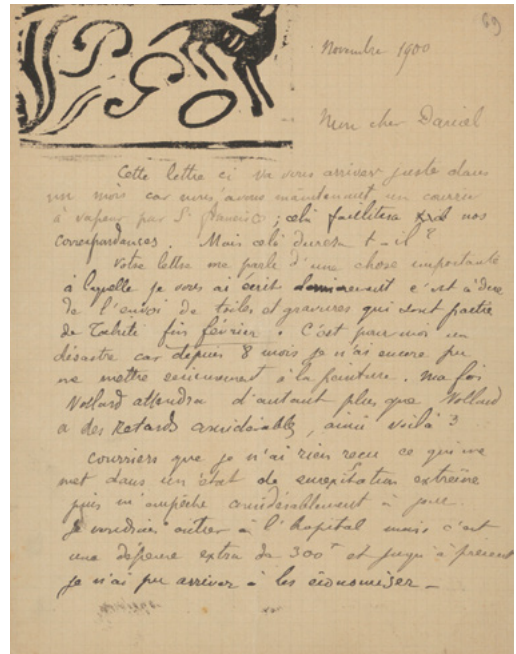 69
Novembre 1900
Mon cher Daniel
Cette lettre ci va vous arriver juste dans
un mois car nous avons maintenant un courrier
à vapeur par St Francisco ; celà facilitera nos
correspondances. Mais celà durera t-il ?
Votre lettre me parle d'une chose importante
à laquelle je vous ai écrit dernierement c'est à dire
de l'envoi de toiles et gravures qui sont partie
de Tahiti fin février. C'est pour moi un
désastre car depuis 8 mois je n'ai encore pu
me mettre serieusement à la peinture. Ma foi
Vollard attendra d'autant plus que Vollard
a des retards considérables, ainsi voilà 3
courriers que je n'ai rien recu ce qui me
met dans un état de surexcitation extreme
puis m'empêche considérablement à
Je voudrais entrer à l'hopital mais c'est
une depense extra de 300f et jusqu'à présent
je n'ai pu arriver à les économiser _